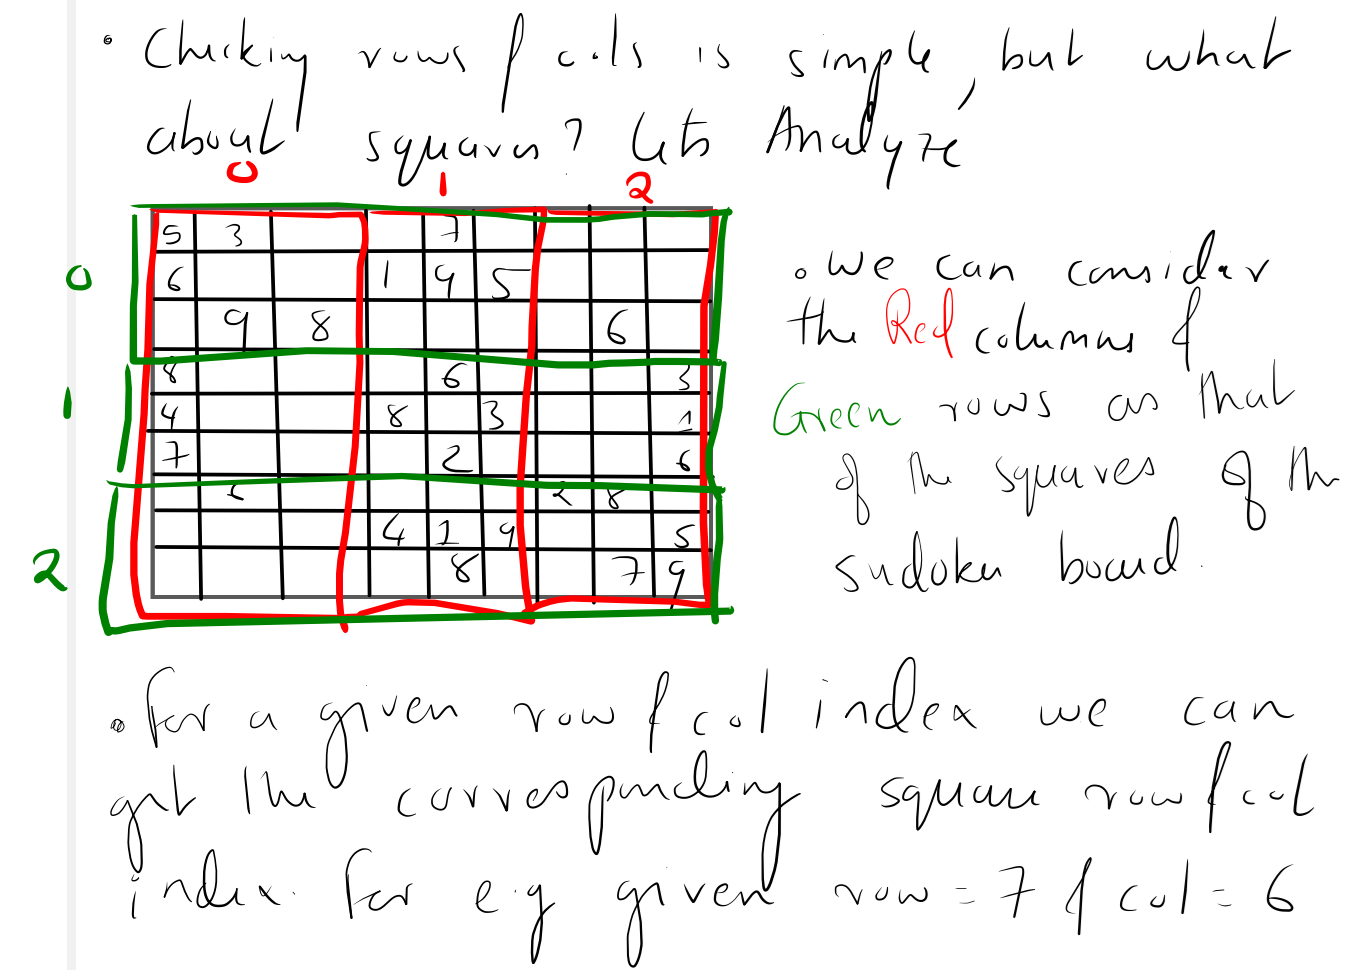 • Checking rows & cols is simple, but what
about squares? Lets Analyze
0 1 2
5 3 7
0
6 1 9 5
9 8 6
8 6 3
1
4 8 3 1
7 2 6
6 2 8
4 1 9 5
2
8 7 9
• We can consider
the Red columns &
Green rows as that
of the squares of the
sudoku board.
• For a given row & col index we can
get the corresponding square row & col
index. For e.g given row = 7 & col = 6